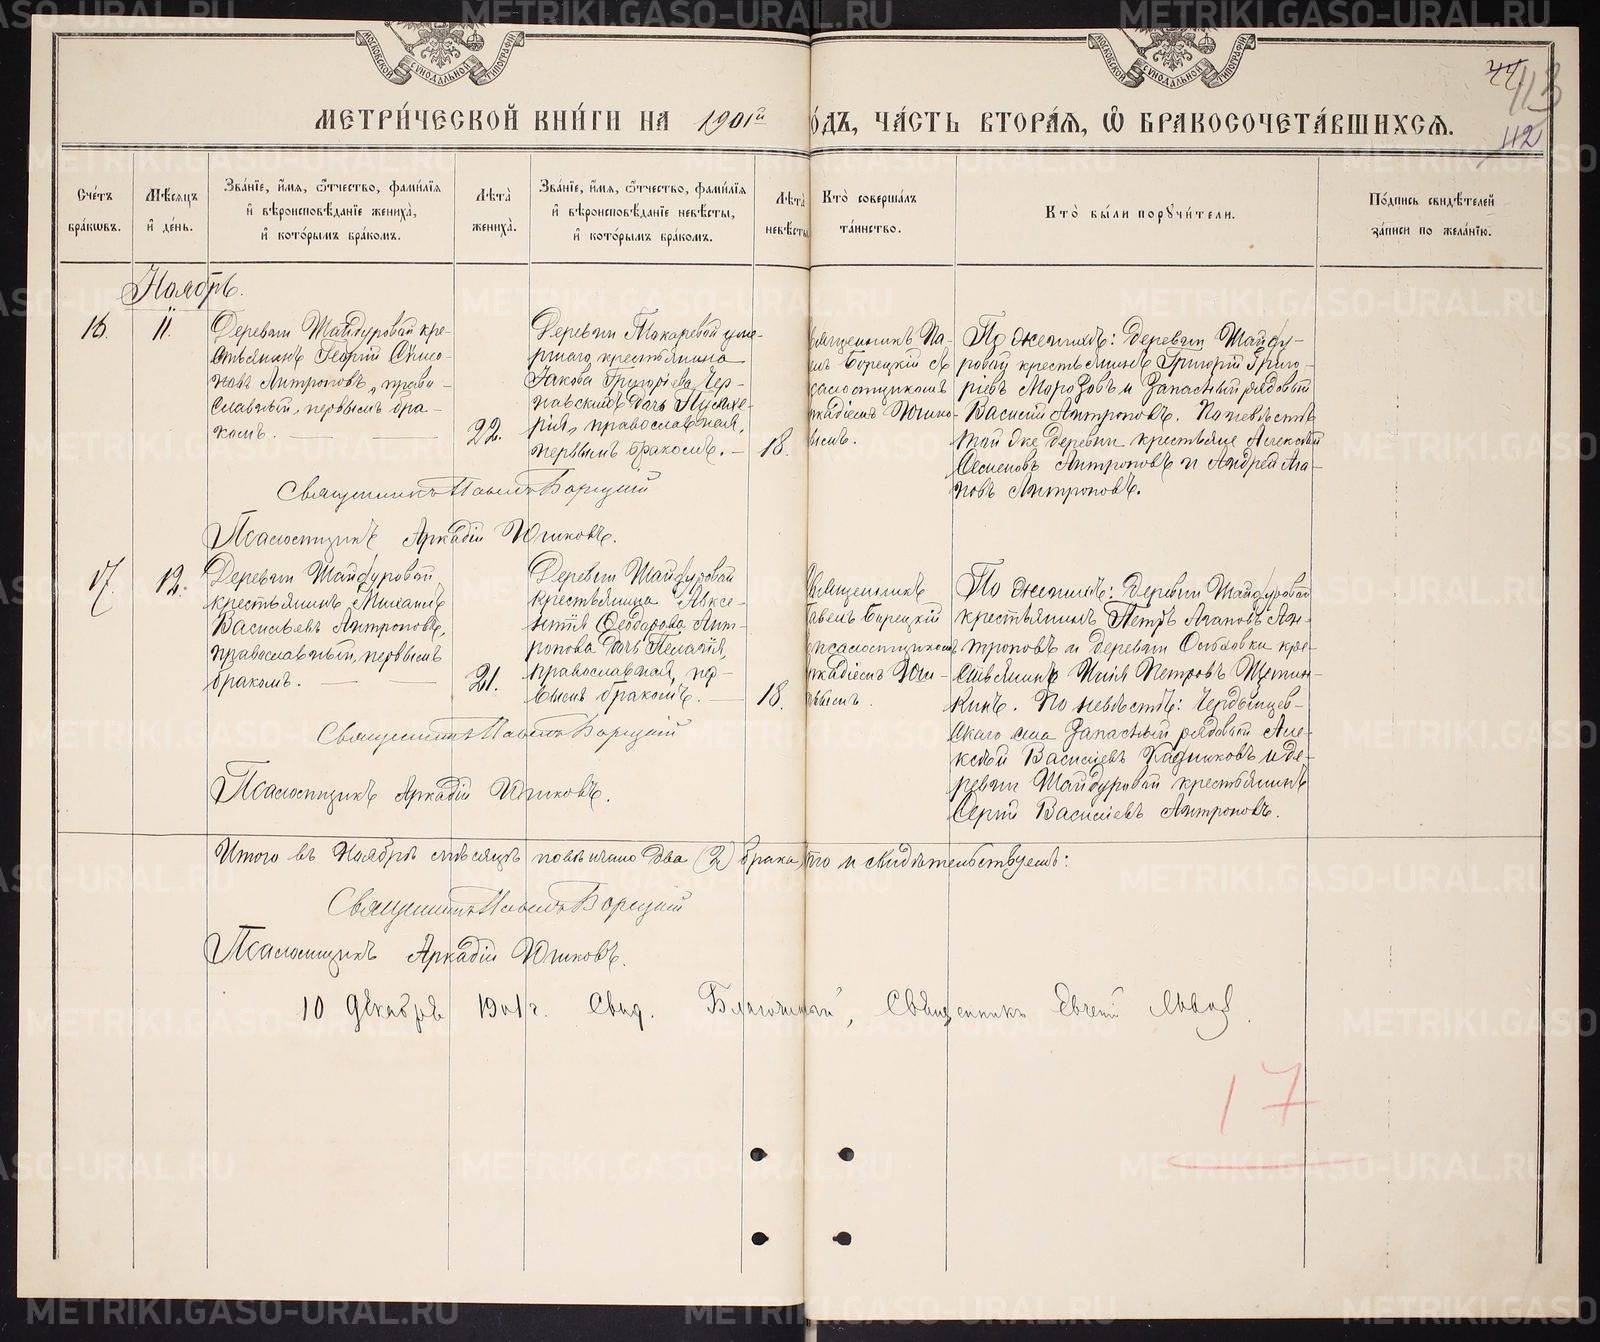 МЕТРИ́ЧЕСКОЙ КНИ́ГИ НА 1901й
О́ДЪ, ЧА́СТЬ ВТОРА́Я, Ѡ҆ БРАКОСОЧЕТА́ВШИХСѦ.
113
112
Сче́тъ бра́кѡвъ.
Мѣ́сѧцъ и҆ де́нь.
Зва́нїе, и҆́мѧ, ѻ҆́тчество, фами́лїѧ
и҆ вѣроисповѣ́данїе жениха̀,
и҆ кото́рымъ бра́комъ.
Лѣта̀ жениха̀.
Зва́нїе, и҆́мѧ, ѻ҆́тчество, фами́лїѧ
и҆ вѣроисповѣ́данїе невѣ́сты,
и҆ кото́рымъ бра́комъ.
Лѣта̀ невѣсты
Кто̀ соверша́лъ
та́инство.
Кто̀ бы́ли порꙋчи́тели.
По́дпись свидѣ́телей
за́писи по жела́нїю.
Ноябрь.
16.
11.
Деревни Шайдуровой кре-
стьянинъ Георгій
Антроповъ, право-
славный, первымъ бра-
комъ.
22.
Деревни Токаревой уме-
ршаго крестьянина
Іакова Григоріева Чер-
навскихъ дочь Пульхе-
рія, православная,
первымъ бракомъ.
18.
священникъ Па-
елъ Борецкій съ
псаломщикомъ
ркадіемъ Юшко-
вымъ.
По женихѣ: деревни Шайду-
ровой крестьянинъ Григорій Григо-
ріевъ Морозовъ и запасный рядовый
Василій Антроповъ. По невѣстѣ
той же деревни крестьяне Алексѣй
Семеновъ Антроповъ и Андрей Ага-
повъ Антроповъ.
Священникъ Павелъ Борецкій
Псаломщикъ Аркадій Юшковъ.
17.
12.
Деревни Шайдуровой
крестьянинъ Михаилъ
Васильевъ Антроповъ,
православный, первымъ
бракомъ.
21.
Деревни Шайдуровой
крестьянина Авксе-
нтія Ѳеодорова Ант-
ропова дочь Пелагія,
православная, пер-
вымъ бракомъ.
18.
вященникъ
авелъ Борецкій
псаломщикомъ
ркадіемъ Юш-
ковымъ.
По женихѣ: деревни Шайдуровой
крестьянинъ Петръ Агаповъ Ан-
троповъ и деревни кре-
стьянинъ Илія Петровъ Щетин-
кинъ. По невѣстѣ: Чердынцев-
скаго села запасный рядовой Але-
ксѣй Васильевъ Ладыжковъ и де-
ревни Шайдуровой крестьянинъ
Сергій Васильевъ Антроповъ.
Священникъ Павелъ Борецкій
Псаломщикъ Аркадій Юшковъ.
Итого въ Ноябрѣ мѣсяцѣ повѣнчано два (2) брака, что и свидѣтельствуемъ:
Священникъ Павелъ Борецкій
Псаломщикъ Аркадій Юшковъ.
10 Декабря 1901 г. Свид. Благочинный, Священникъ Евгеній Львовъ.
17